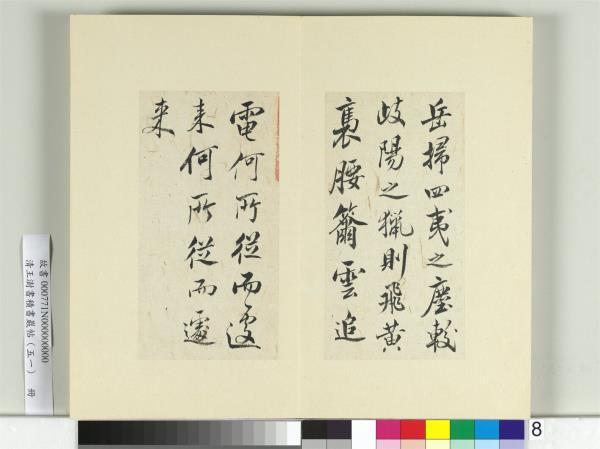 岳掃四夷之塵較
岐陽之獵則飛黃
褭腰籋雲追
電何所從而遽
来何所從而遽
来
故書 000771N000000000
清王澍書積書巖帖（五一） 冊
8